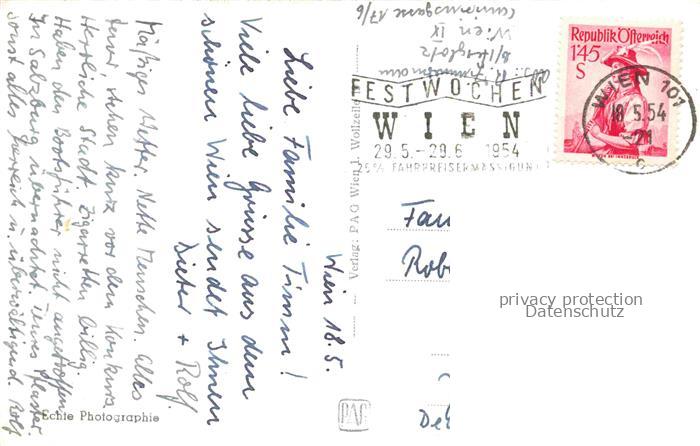 Wien 18.5.
Liebe Familie Timm!
Viele liebe Grüsse aus dem
schönen Wien sendet Ihnen
Dieter + Rolf
Mäßiges Wetter. Nette Menschen. Alles
teuer, stehen kurz vor dem Konkurs.
Herrliche Stadt. Zigaretten billig.
Haben den Bootsführer nicht angetroffen.
In Salzburg übernachtet. Teures Pflaster.
Sonst alles herrlich u. überwältigend. Rolf
Echte Photographie
Verlag: PAG Wien I. Wollzeile
PAG
Wien IX
FESTWOCHEN
WIEN
29.5.-20.6 1954
25% FAHRPREISERMÄSSIGUNG
Republik Österreich
1'45
S
WIEN 101
18.5.54
-21
c
Fam
Rob
privacy protection
Datenschutz